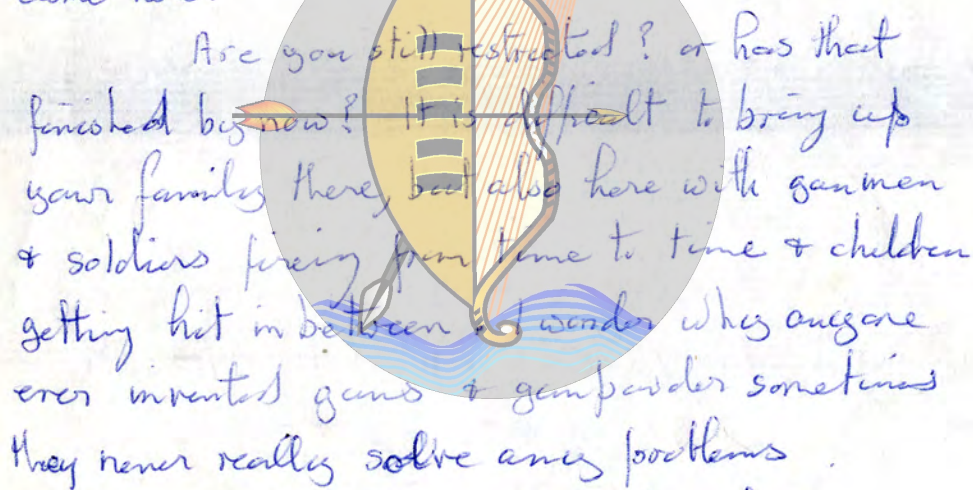 Are you still restricted? or has that
finished by now? It is difficult to bring up
your family there, but also here with gunmen
& soldiers firing from time to time & children
getting hit in between. I wonder why anyone
ever invented guns & gunpowder sometimes
they never really solve any problems.